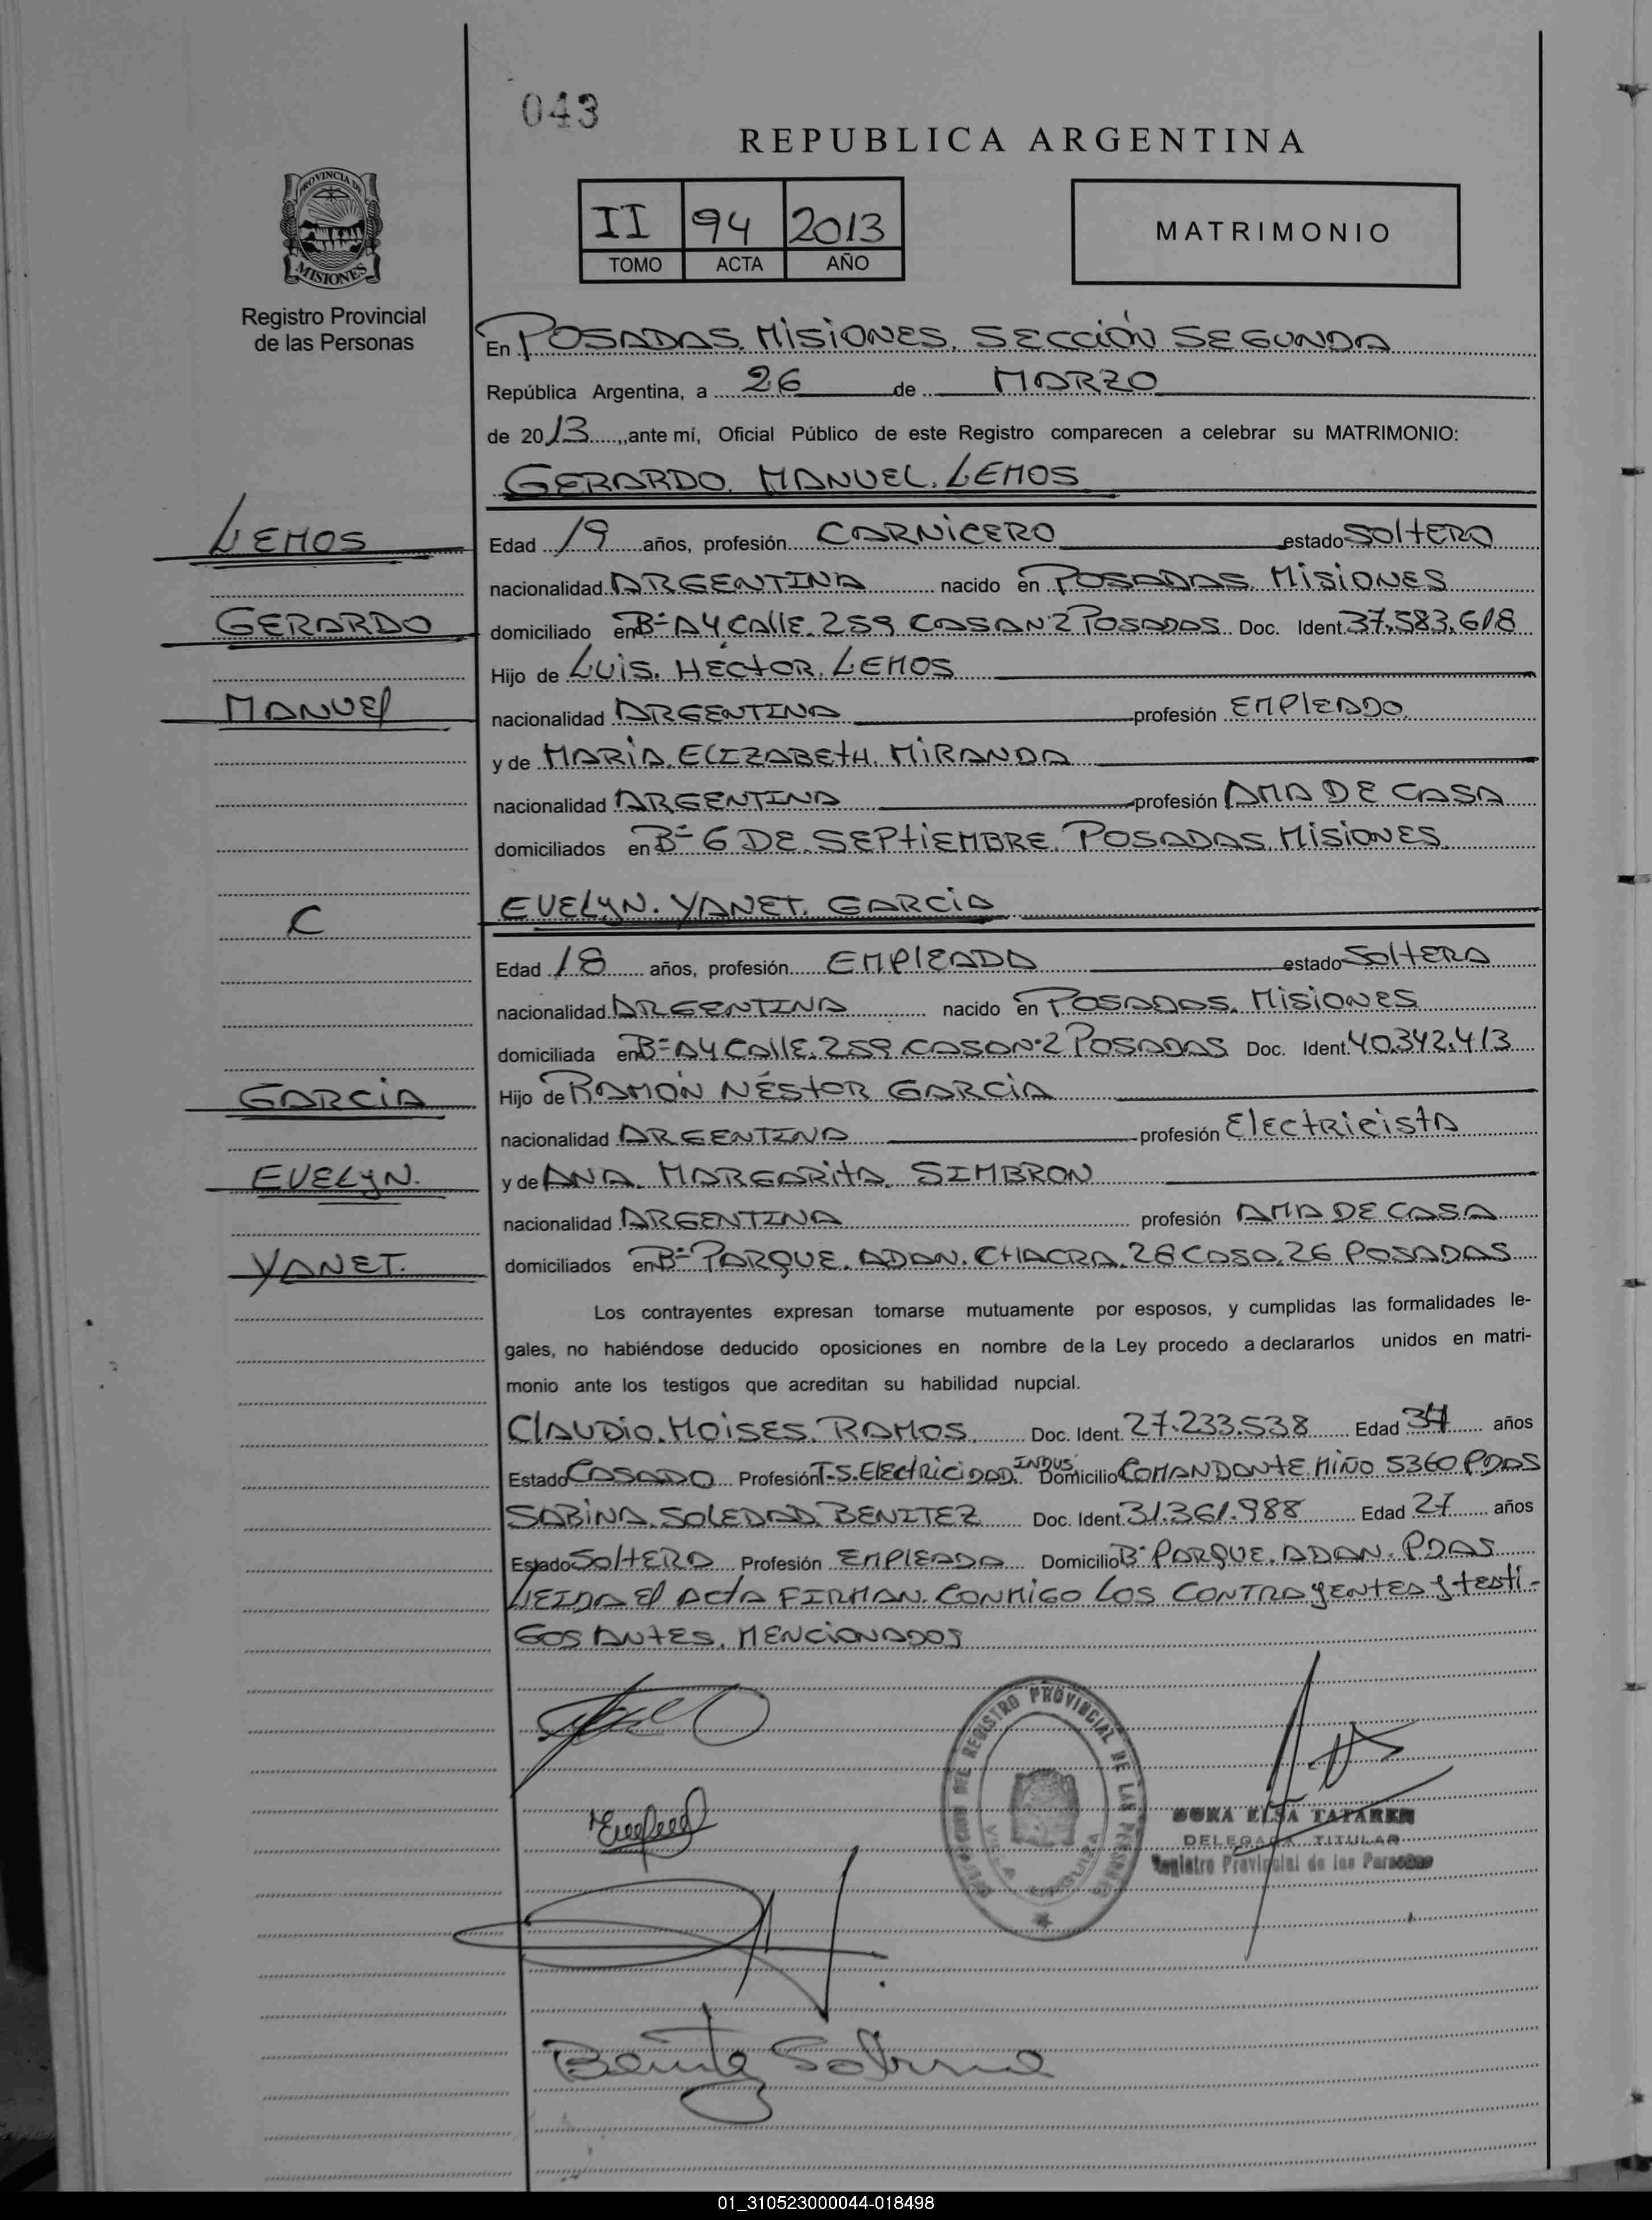 043
REPUBLICA ARGENTINA
PROVINCIA DE
MISIONES
Registro Provincial
de las Personas
II 94 2013
TOMO ACTA AÑO
MATRIMONIO
En POSADAS. MISIONES. SECCIÓN SEGUNDA
República Argentina, a 26 de MARZO
de 2013, ante mí, Oficial Público de este Registro comparecen a celebrar su MATRIMONIO:
GERARDO. MANUEL. LEMOS
LEMOS
Edad 19 años, profesión CARNICERO estado SOLTERO
nacionalidad ARGENTINA nacido en POSADAS. MISIONES
GERARDO
domiciliado en Bº A4 CALLE. 259 CASA Nº2 POSADAS Doc. Ident. 37.583.618
Hijo de LUIS. HÉCTOR. LEMOS
MANUEL
nacionalidad ARGENTINA profesión EMPLEADO
y de MARÍA. ELIZABETH. MIRANDA
nacionalidad ARGENTINA profesión AMA DE CASA
domiciliados en Bº 6 DE. SEPTIEMBRE. POSADAS. MISIONES
C
EVELYN. YANET. GARCÍA
Edad 18 años, profesión EMPLEADA estado SOLTERA
nacionalidad ARGENTINA nacido en POSADAS. MISIONES
domiciliada en Bº A4 CALLE. 259 CASA Nº2 POSADAS Doc. Ident. 40.342.413
GARCÍA
Hijo de RAMÓN NÉSTOR GARCÍA
nacionalidad ARGENTINA profesión ELECTRICISTA
EVELYN.
y de ANA. MARGARITA. SIMBRON
nacionalidad ARGENTINA profesión AMA DE CASA
YANET.
domiciliados en Bº PARQUE. ADAN. CHACRA. 26 CASA. 26 POSADAS
Los contrayentes expresan tomarse mutuamente por esposos, y cumplidas las formalidades le-
gales, no habiéndose deducido oposiciones en nombre de la Ley procedo a declararlos unidos en matri-
monio ante los testigos que acreditan su habilidad nupcial.
CLAUDIO. MOISES. RAMOS. Doc. Ident. 27.233.538 Edad 34 años
Estado CASADO Profesión T.S. ELECTRICIDAD. INDUS. Domicilio COMANDANTE MIÑO 5360 PDAS
SABINA. SOLEDAD. BENITEZ Doc. Ident. 31.361.988 Edad 27 años
Estado SOLTERA Profesión EMPLEADA Domicilio Bº PARQUE. ADAN. PDAS
LEIDA EL ACTA FIRMAN. CONMIGO LOS CONTRAYENTES y testi-
GOS ANTES. MENCIONADOS
REGISTRO PROVINCIAL DE LAS PERSONAS
ELSA
DELEGADA TITULAR
Registro Provincial de las Personas
Benitez Sabrina
01_310523000044-018498